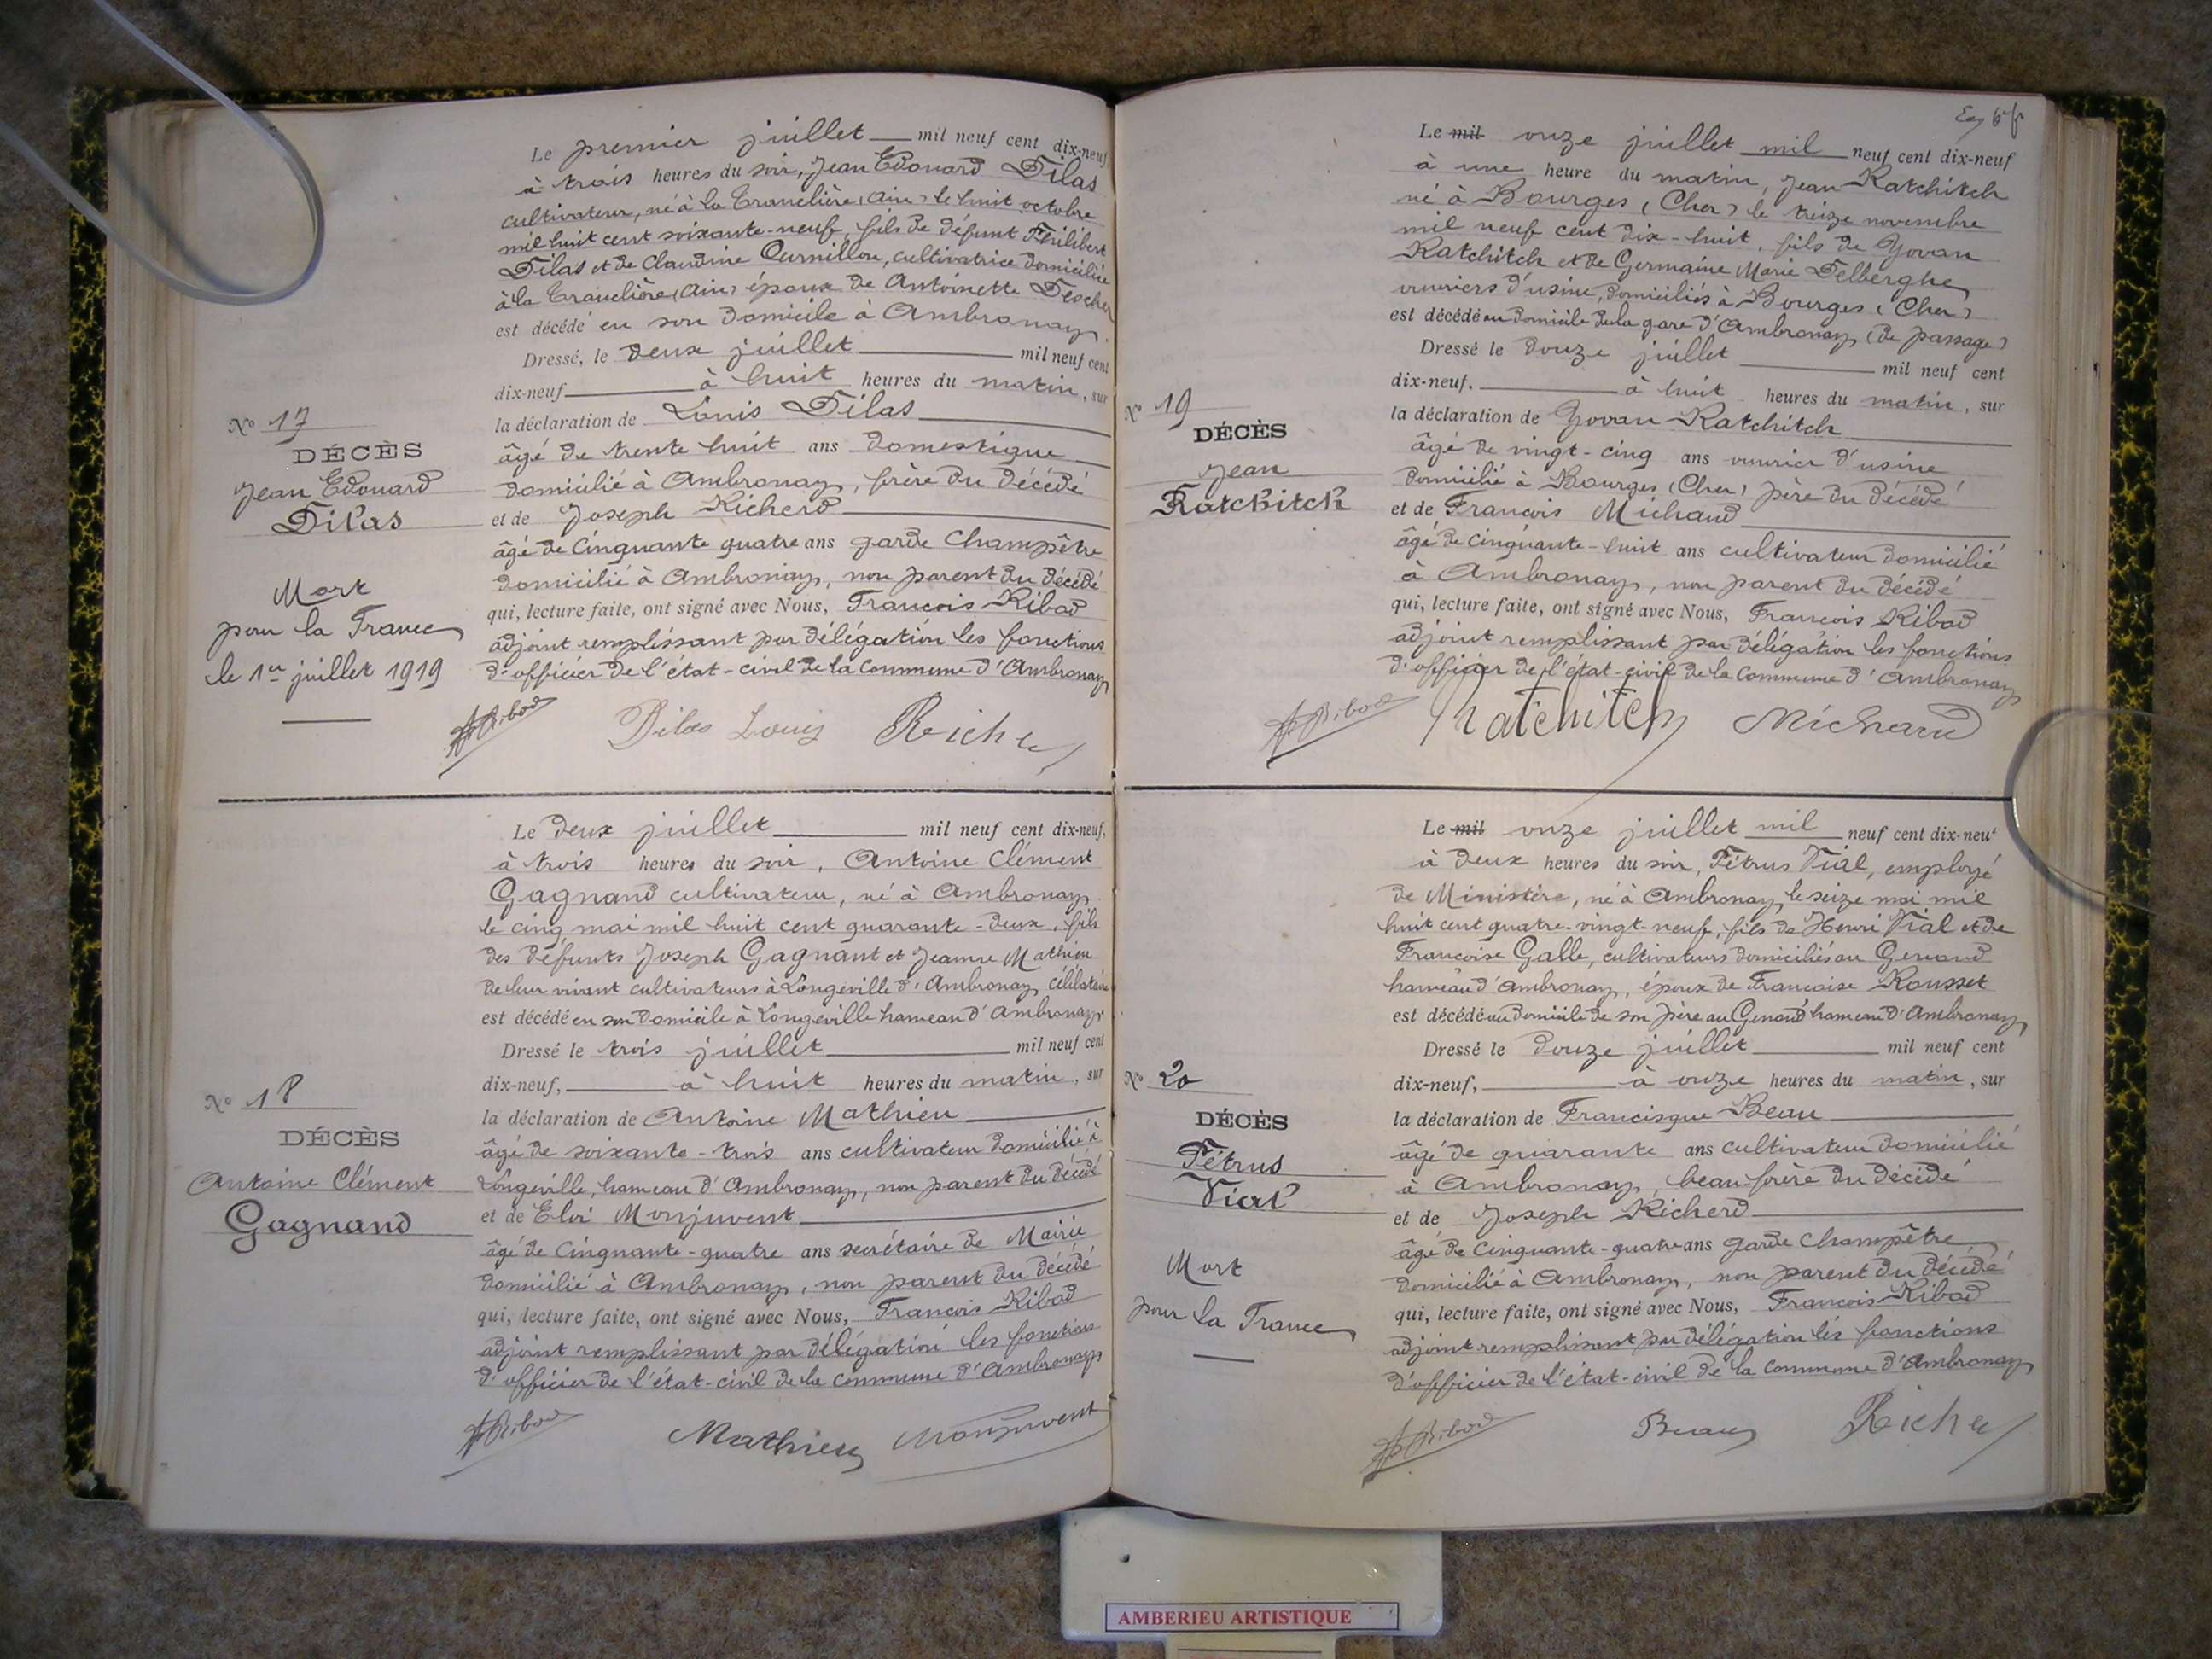 Le premier juillet mil neuf cent dix-neuf
à trois heures du soir, Jean Edouard Dilas
cultivateur, né à la Tranclière (Ain) le huit octobre
mil huit cent soixante-neuf, fils de défunt Philibert
Dilas et de Claudine Curnillon, cultivatrice domiciliée
à la Tranclière (Ain) époux de Antoinette
est décédé en son domicile à Ambronay.
Dressé, le deux juillet mil neuf cent
dix-neuf à huit heures du matin, sur
la déclaration de Louis Dilas
âgé de trente huit ans domestique
domicilié à Ambronay, frère du décédé
et de Joseph Richerd
âgé de Cinquante quatre ans garde Champêtre
domicilié à Ambronay, non parent du décédé
qui, lecture faite, ont signé avec Nous, François Ribod
adjoint remplissant par délégation les fonctions
d'officier de l'état-civil de la Commune d'Ambronay
Ribod Dilas Louis Richer
No 17
DÉCÈS
Jean Edouard
Dilas
Mort
pour la France
le 1er juillet 1919
Le deux juillet mil neuf cent dix-neuf,
à trois heures du soir, Antoine Clément
Gagnand cultivateur, né à Ambronay
le cinq mai mil huit cent quarante-deux, fils
des défunts Joseph Gagnant et Jeanne Mathieu
de leur vivant cultivateurs à Longeville d'Ambronay, célibataire
est décédé en son domicile à Longeville hameau d'Ambronay.
Dressé le trois juillet mil neuf cent
dix-neuf, à huit heures du matin, sur
la déclaration de Antoine Mathieu
âgé de soixante-trois ans cultivateur domicilié à
Longeville, hameau d'Ambronay, non parent du décédé
et de Eloi Monjuvent
âgé de Cinquante-quatre ans secrétaire de Mairie
domicilié à Ambronay, non parent du décédé
qui, lecture faite, ont signé avec Nous, François Ribod
adjoint remplissant par délégation les fonctions
d'officier de l'état-civil de la commune d'Ambronay
Ribod Mathieu Monjuvent
No 18
DÉCÈS
Antoine Clément
Gagnand
Le mil onze juillet mil neuf cent dix-neuf
à une heure du matin, Jean Ratchitch
né à Bourges (Cher) le treize novembre
mil neuf cent dix-huit, fils de Yovan
Ratchitch et de Germaine Marie Delberghe
ouvriers d'usine, domiciliés à Bourges (Cher)
est décédé au domicile de la gare d'Ambronay (de passage)
Dressé le douze juillet mil neuf cent
dix-neuf, à huit heures du matin, sur
la déclaration de Yovan Ratchitch
âgé de vingt-cinq ans ouvrier d'usine
domicilié à Bourges (Cher) père du décédé
et de François Michaud
âgé de cinquante-huit ans cultivateur domicilié
à Ambronay, non parent du décédé
qui, lecture faite, ont signé avec Nous, François Ribod
adjoint remplissant par délégation les fonctions
d'officier de l'état-civil de la Commune d'Ambronay
Ribod Ratchitch Michaud
No 19
DÉCÈS
Jean
Ratchitch
Le mil onze juillet mil neuf cent dix-neuf
à deux heures du soir, Pétrus Vial, employé
de Ministère, né à Ambronay, le seize mai mil
huit cent quatre-vingt-neuf, fils de Henri Vial et de
Françoise Galle, cultivateurs domiciliés au Genoud
hameau d'Ambronay, époux de Françoise Rousset
est décédé au domicile de son père au Genoud hameau d'Ambronay
Dressé le douze juillet mil neuf cent
dix-neuf, à onze heures du matin, sur
la déclaration de Francisque Beau
âgé de quarante ans cultivateur domicilié
à Ambronay, beau frère du décédé
et de Joseph Richerd
âgé de Cinquante-quatre ans garde Champêtre
domicilié à Ambronay, non parent du décédé
qui, lecture faite, ont signé avec Nous, François Ribod
adjoint remplissant par délégation les fonctions
d'officier de l'état-civil de la commune d'Ambronay
Ribod Beau Richer
No 20
DÉCÈS
Pétrus
Vial
Mort
pour la France
AMBERIEU ARTISTIQUE